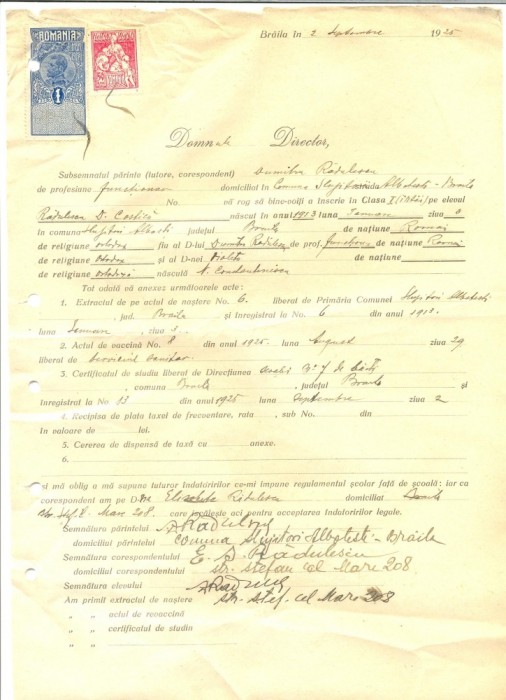 ROMANIA
1
Brăila în 2 Septemvre 1925
Domnule Director,
Subsemnatul părinte (tutore, corespondent) Dumitru Rădulescu
de profesiune funcţionar domiciliat în Comuna Slujitori Albotesti - Braila
No. vă rog să bine-voiţi a înscrie în Clasa I pe elevul
Rădulescu D. Costică născut în anul 1913 luna Ianuar ziua
în comuna Slujitori Albotesti judeţul Braila de naţiune Român
de religiune ortodox fiu al D-lui Dumitru Rădulescu de prof. funcţionar de naţiune Român
de religiune ortodox şi al D-nei Violeta de naţiune
de religiune ortodoxă născută N. Constantinescu
Tot odată să anexez următoarele acte :
1. Extractul de pe actul de naştere No. 6 liberat de Primăria Comunei Slujitori Albotesti
, jud. Braila şi înregistrat la No. 6 din anul 1913
luna Ianuar ziua
2. Actul de vaccină No. 8 din anul 1925 luna August ziua 29
liberat de serviciul sanitar
3. Certificatul de studiu liberat de Direcţiunea de băeţi
, comuna Braila , judeţul Braila şi
înregistrat la No. 13 din anul 1925 luna Septembre ziua 2
4. Recipisa de plata taxei de frecventare, rata , sub No. din
în valoare de lei.
5. Cererea de dispensă de taxă cu anexe.
6.
şi mă oblig a mă supune tuturor îndatoririlor ce-mi impune regulamentul şcolar faţă de şcoală : iar ca
corespondent am pe D-na Elisabeta Rădulescu domiciliat
Str. Ştef. C. Mare 208. care iscăleşte aci pentru acceptarea îndatoririlor legale.
Semnătura părintelui
domiciliul părintelui comuna Slujitori Albotesti - Braila
Semnătura corespondentului E. D. Radulescu
domiciliul corespondentului str. Stefan cel Mare 208
Semnătura elevului
Am primit extractul de naştere str. Stef. cel Mare 208
„ „ actul de revaccină
„ „ certificatul de studiu
Semnătura părintelui